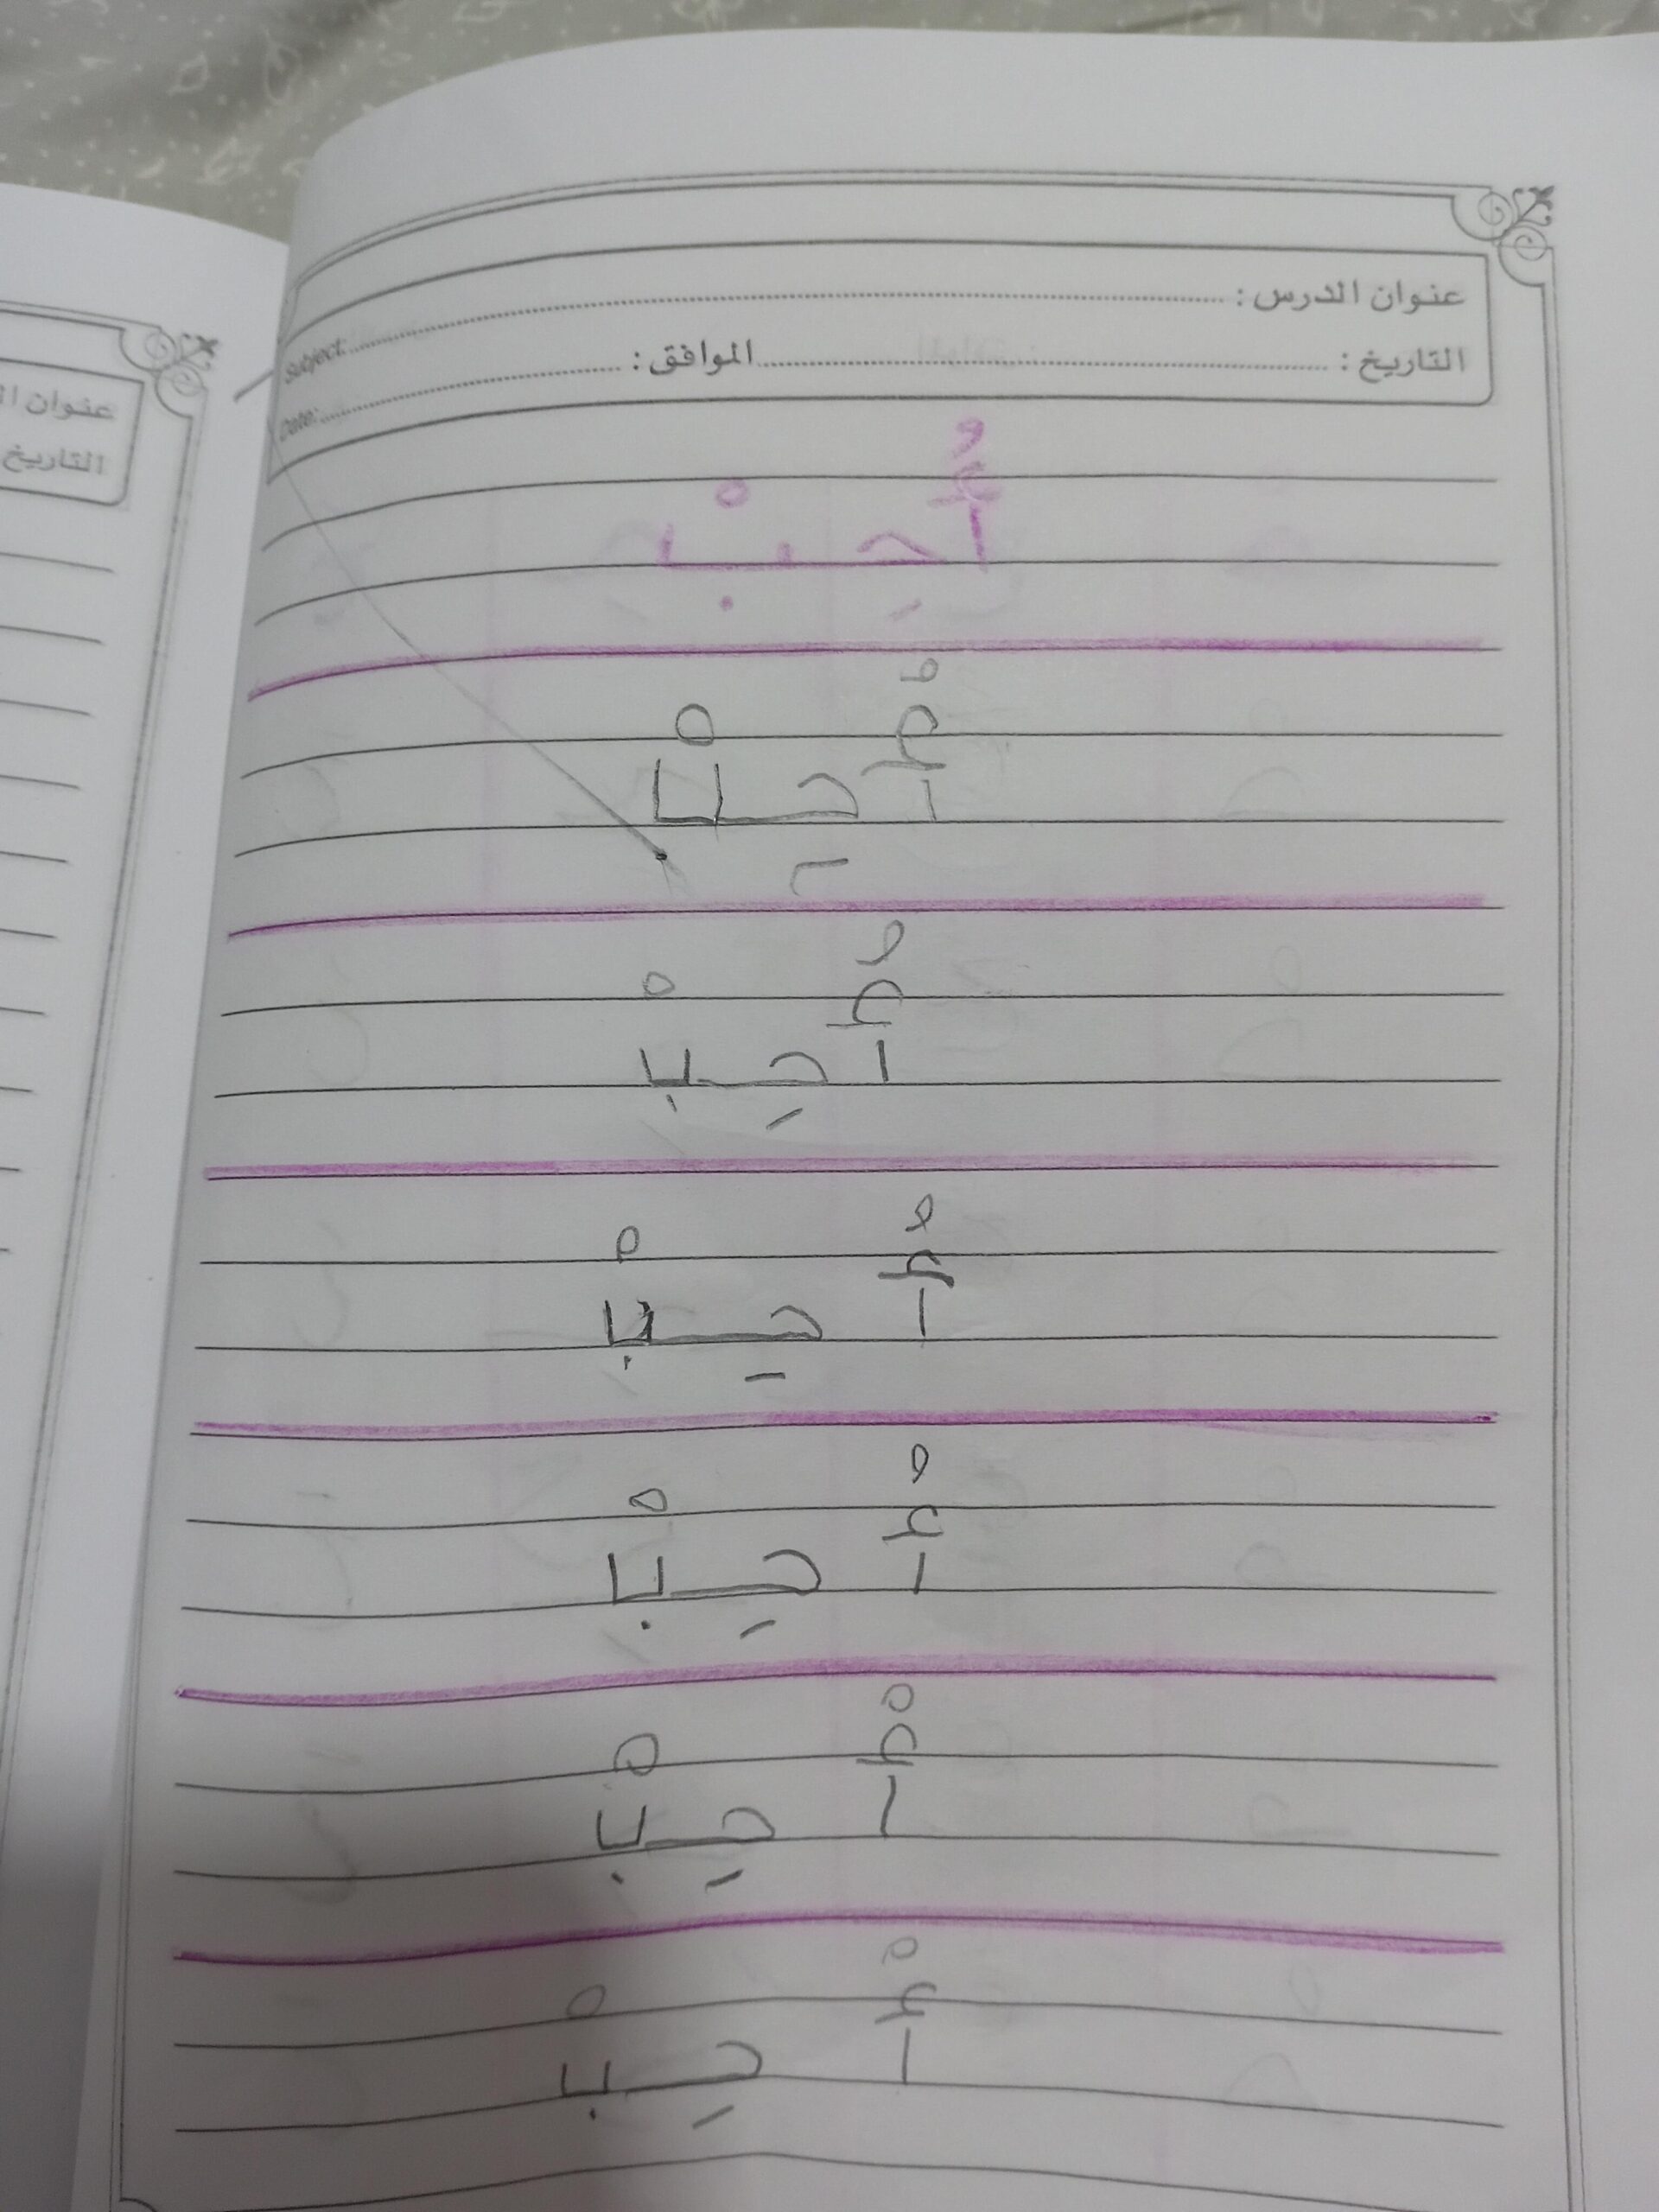 عنوان الدرس: Subject:
التاريخ: الموافق: Date:
أُحِبْ
أُحِبْ
أُحِبْ
أُحِبْ
أُحِبْ
أُحِبْ
أُحِبْ
عنوان
التاريخ